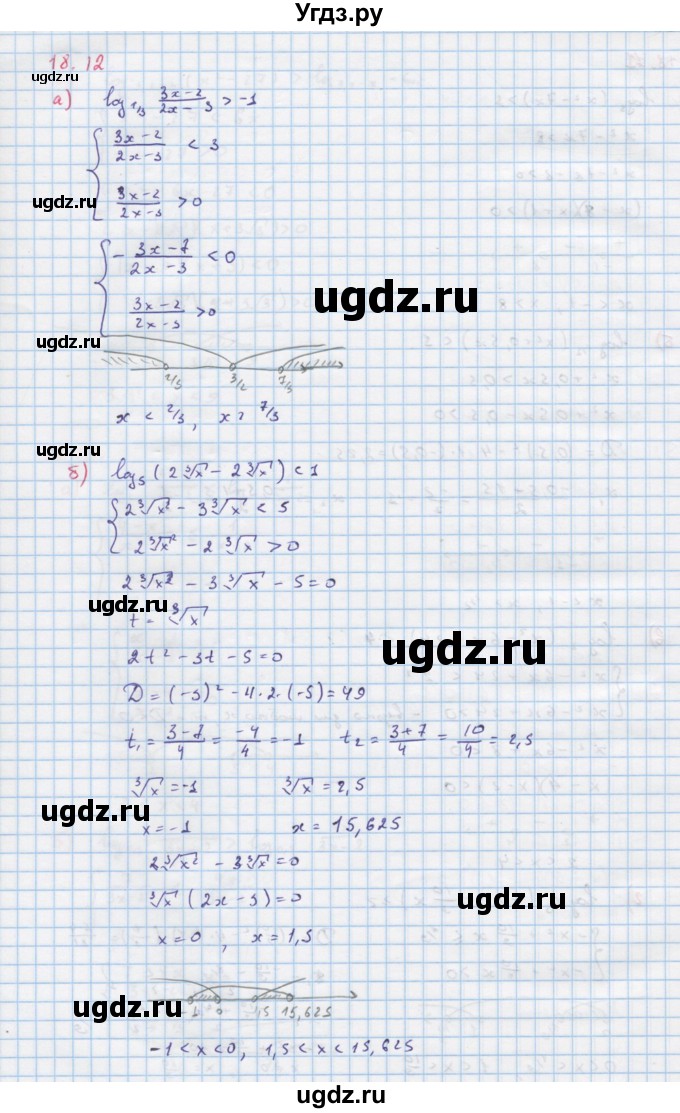 Угдз.ру
18.12
ugdz.ru
а) log₁/₃ (3x-2)/(2x-3) > -1
{ (3x-2)/(2x-3) < 3
ugdz.ru
(3x-2)/(2x-3) > 0
{ -(3x-7)/(2x-3) < 0
ugdz.ru
(3x-2)/(2x-3) > 0
ugdz.ru
2/3 3/2 7/3
x < 2/3, x > 7/3
ugdz.ru
б) log₅(2∛x² - 2∛x) < 1
{ 2∛x² - 3∛x < 5
2∛x² - 2∛x > 0
2∛x² - 3∛x - 5 = 0
ugdz.ru
t = ∛x
ugdz.ru
2t² - 3t - 5 = 0
D = (-3)² - 4·2·(-5) = 49
t₁ = (3-7)/4 = -4/4 = -1 t₂ = (3+7)/4 = 10/4 = 2,5
∛x = -1 ∛x = 2,5
ugdz.ru
x = -1 x = 15,625
2∛x² - 3∛x = 0
∛x (2x - 3) = 0
ugdz.ru
x = 0, x = 1,5
-1 0 1,5 15,625
-1 < x < 0, 1,5 < x < 15,625
ugdz.ru